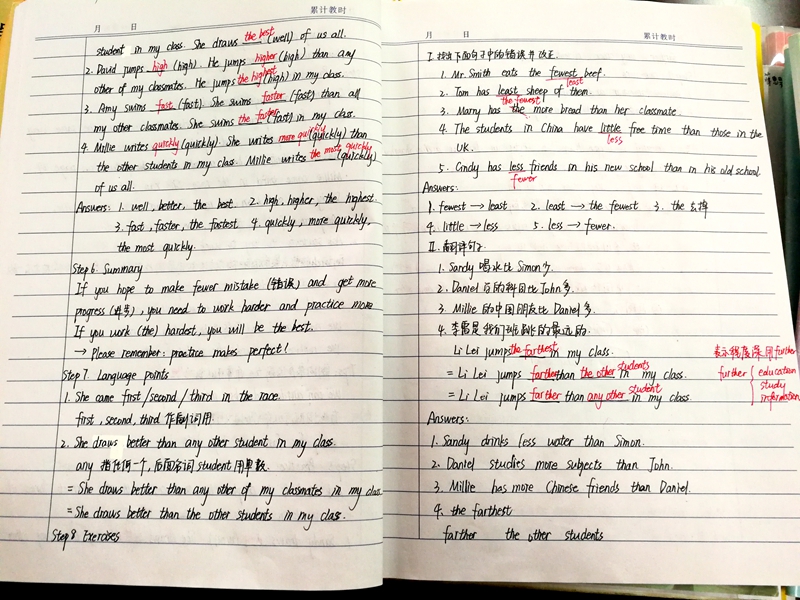 累计教时
月 日
student in my class. She draws the best (well) of us all.
2. David jumps high (high). He jumps higher (high) than any
other of my classmates. He jumps the highest (high) in my class.
3. Amy swims fast (fast). She swims faster (fast) than all
my other classmates. She swims the fastest (fast) in my class.
4. Millie writes quickly (quickly). She writes more quickly (quickly) than
the other students in my class. Millie writes the most quickly (quickly)
of us all.
Answers: 1. well, better, the best 2. high, higher, the highest
3. fast, faster, the fastest 4. quickly, more quickly,
the most quickly.
Step 6. Summary
If you hope to make fewer mistake (错误) and get more
progress (进步), you need to work harder and practice more
If you work (the) hardest, you will be the best.
→ Please remember: practice makes perfect!
Step 7. Language points
1. She came first / second / third in the race.
first, second, third 作副词用.
2. She draws better than any other student in my class.
any 指任何一个, 后面名词 student 用单数.
= She draws better than any other of my classmates in my class.
= She draws better than the other students in my class.
Step 8 Exercises
月 日
累计教时
I. 找出下面句子中的错误并改正.
1. Mr. Smith eats the fewest beef.
least
2. Tom has least sheep of them.
the fewest
3. Marry has the more bread than her classmate.
4. The students in China have little free time than those in the
less
UK.
5. Cindy has less friends in his new school than in his old school.
fewer
Answers:
1. fewest → least. 2. least → the fewest 3. the 去掉
4. little → less 5. less → fewer.
II. 翻译句子.
1. Sandy 喝水比 Simon 少.
2. Daniel 学的科目比 John 多.
3. Millie 的中国朋友比 Daniel 多.
4. 李雷是我们班跳的最远的.
Li Lei jumps the farthest in my class.
= Li Lei jumps farther than the other students in my class.
= Li Lei jumps farther than any other student in my class.
表示程度深用 further
further { education
study
information
Answers:
1. Sandy drinks less water than Simon.
2. Daniel studies more subjects than John.
3. Millie has more Chinese friends than Daniel.
4. the farthest
farther the other students